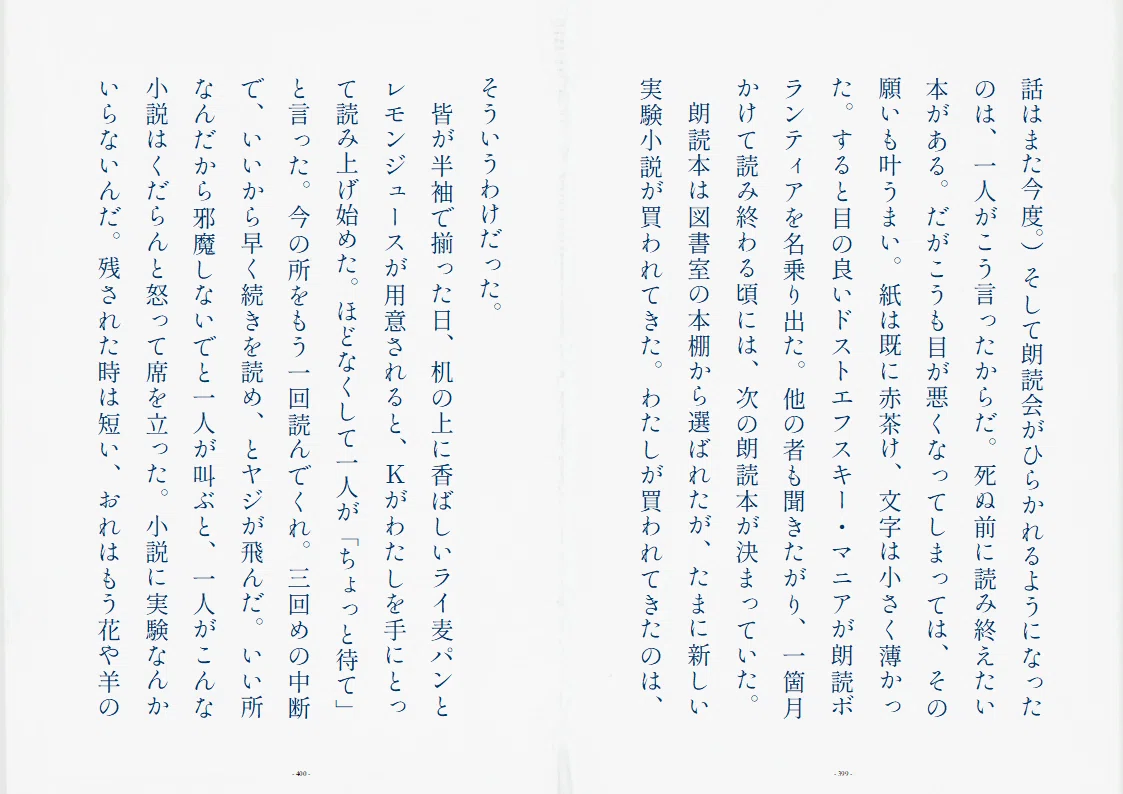 話はまた今度。）そして朗読会がひらかれるようになった
のは、一人がこう言ったからだ。死ぬ前に読み終えたい
本がある。だがこうも目が悪くなってしまっては、その
願いも叶うまい。紙は既に赤茶け、文字は小さく薄かっ
た。すると目の良いドストエフスキー・マニアが朗読ボ
ランティアを名乗り出た。他の者も聞きたがり、一箇月
かけて読み終わる頃には、次の朗読本が決まっていた。
朗読本は図書室の本棚から選ばれたが、たまに新しい
実験小説が買われてきた。わたしが買われてきたのは、
- 399 -
そういうわけだった。
皆が半袖で揃った日、机の上に香ばしいライ麦パンと
レモンジュースが用意されると、Ｋがわたしを手にとっ
て読み上げ始めた。ほどなくして一人が「ちょっと待て」
と言った。今の所をもう一回読んでくれ。三回めの中断
で、いいから早く続きを読め、とヤジが飛んだ。いい所
なんだから邪魔しないでと一人が叫ぶと、一人がこんな
小説はくだらんと怒って席を立った。小説に実験なんか
いらないんだ。残された時は短い、おれはもう花や羊の
- 400 -